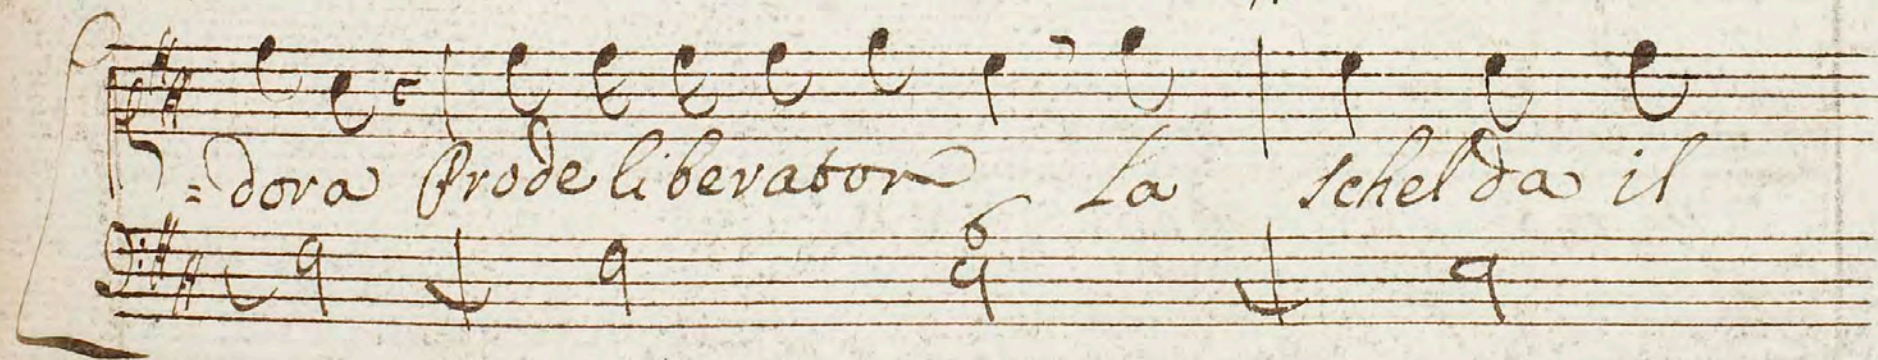 =dora Prode liberator La schelda il
6